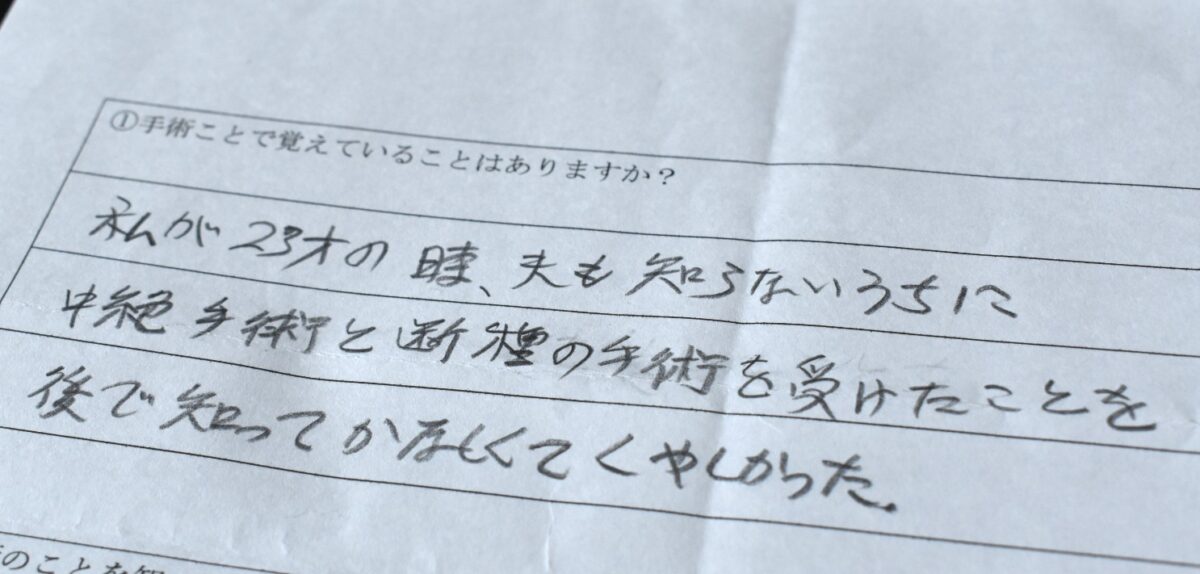 ①手術ことで覚えていることはありますか？
私が23才の時、夫も知らないうちに
中絶手術と断種の手術を受けたことを
後で知ってかなしくてくやしかった.
のことを知